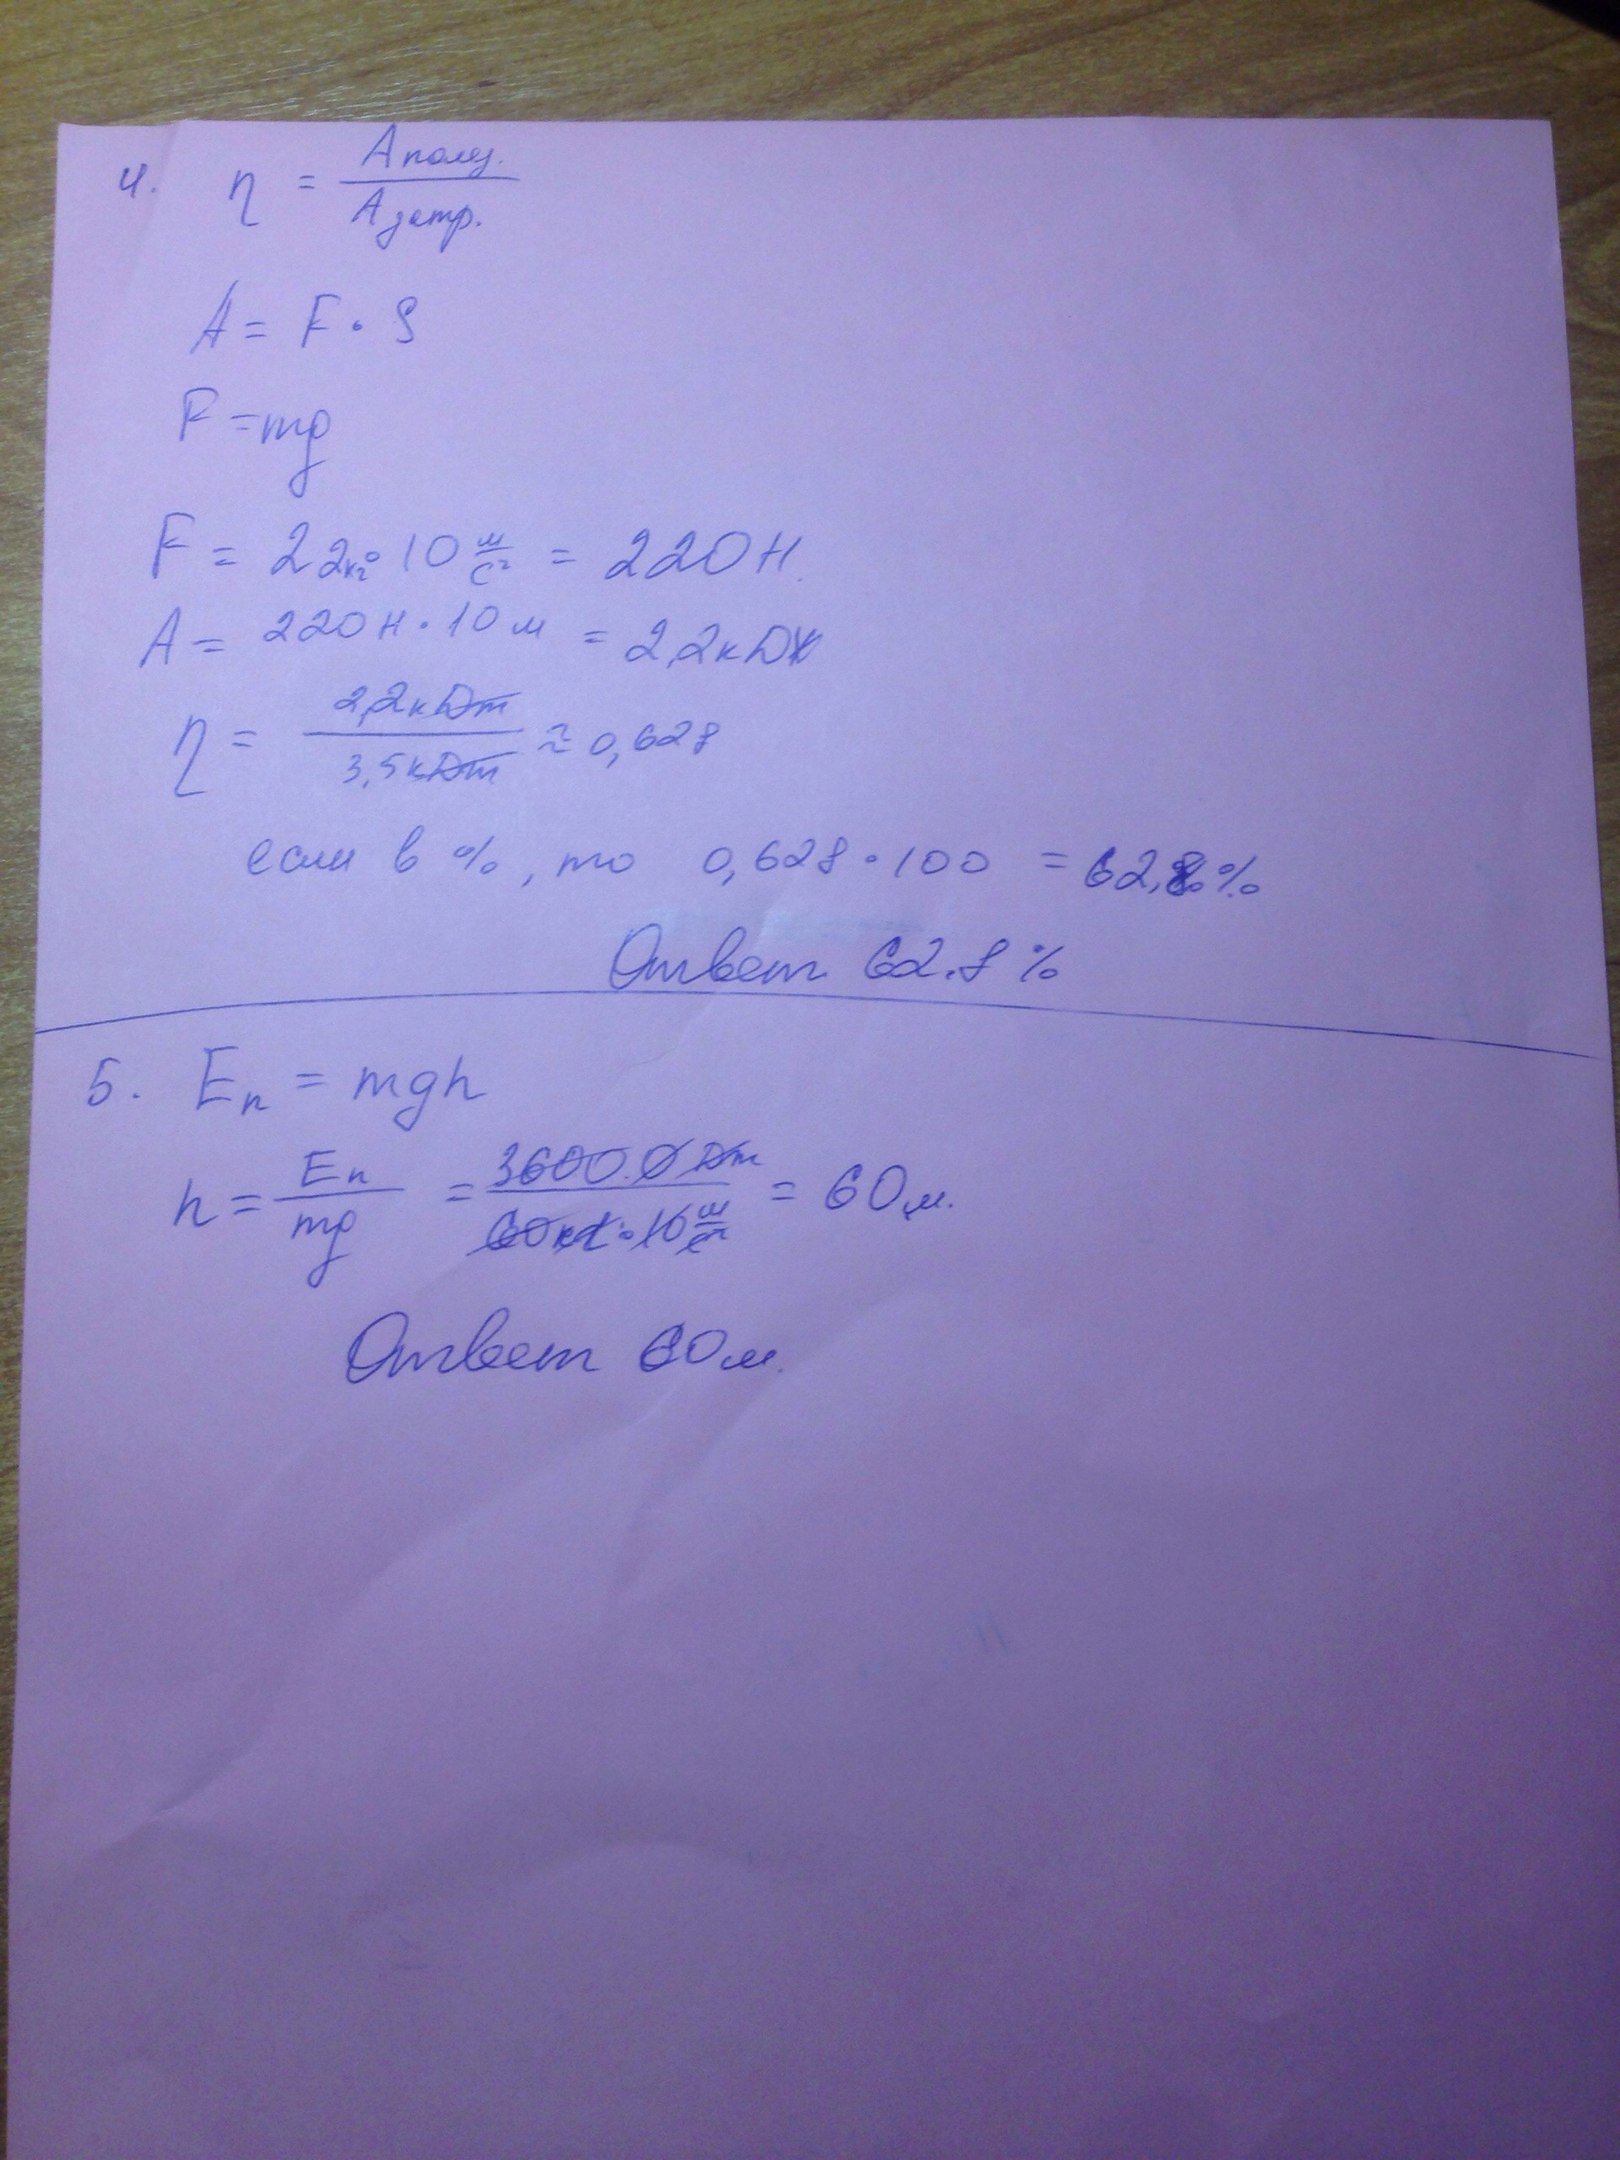 4. η = Аполез. / Азатр.
A = F · S
F = mg
F = 22кг · 10 м/с² = 220 Н.
A = 220 Н · 10 м = 2,2 кДж
η = 2,2кДж / 3,5кДж ≈ 0,628
если в %, то 0,628 · 100 = 62,8 %
Ответ 62.8 %
5. Eп = mgh
h = Eп / mg = 36000 Дж / 60кг · 10 м/с² = 60 м.
Ответ 60 м.